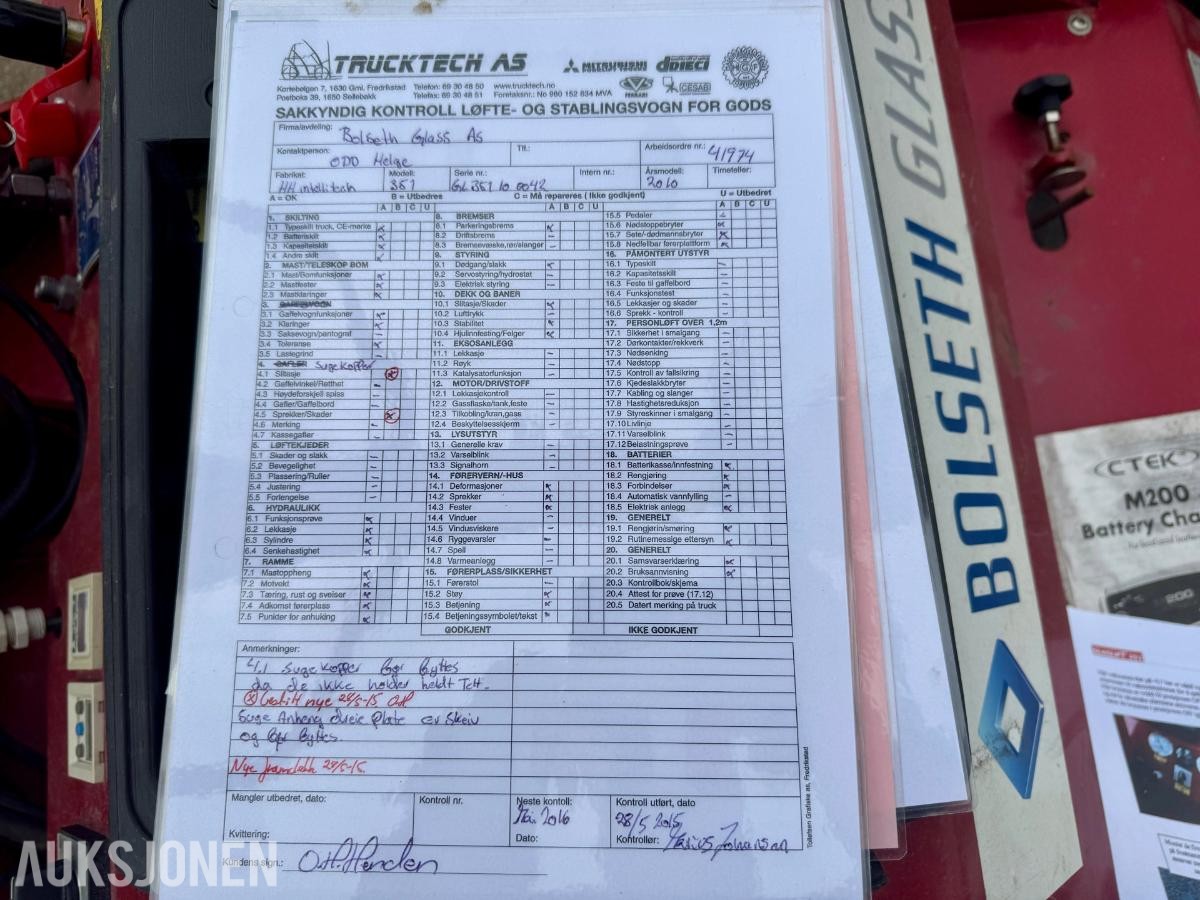 TRUCKTECH AS
MITSUBISHI
DIECI
HGF
FERRARI
CESAB
Kortebølgen 7, 1630 Gml. Fredrikstad Telefon: 69 30 48 50 www.trucktech.no
Postboks 39, 1650 Sellebakk Telefax: 69 30 48 51 Foretaksnr.: No 980 152 834 MVA
SAKKYNDIG KONTROLL LØFTE- OG STABLINGSVOGN FOR GODS
Firma/avdeling: Bolseth Glass As
Kontaktperson: ODD Helge
Tlf.:
Arbeidsordre nr.: 41974
Fabrikat: HH intellitech
Modell: 351
Serie nr.: GL 351 10 0042
Intern nr.:
Årsmodell: 2010
Timeteller:
A = OK B = Utbedres C = Må repareres ( Ikke godkjent) U = Utbedret
A B C U
1. SKILTING
1.1 Typeskilt truck, CE-merke
1.2 Batteriskilt
1.3 Kapasitetskilt
1.4 Andre skilt
2. MAST/TELESKOP BOM
2.1 Mast/Bomfunksjoner
2.2 Mastfester
2.3 Mastklaringer
3. GAFFELVOGN
3.1 Gaffelvognfunksjoner
3.2 Klaringer
3.3 Saksevogn/pantograf
3.4 Toleranse
3.5 Lastegrind
4. GAFLER Sugekopper
4.1 Slitasje
4.2 Gaffelvinkel/Retthet
4.3 Høydeforskjell spiss
4.4 Gafler/Gaffelbord
4.5 Sprekker/Skader
4.6 Merking
4.7 Kassegafler
5. LØFTEKJEDER
5.1 Skader og slakk
5.2 Bevegelighet
5.3 Plassering/Ruller
5.4 Justering
5.5 Forlengelse
6. HYDRAULIKK
6.1 Funksjonsprøve
6.2 Lekkasje
6.3 Sylindre
6.4 Senkehastighet
7. RAMME
7.1 Mastoppheng
7.2 Motvekt
7.3 Tæring, rust og sveiser
7.4 Adkomst førerplass
7.5 Punkter for anhuking
A B C U
8. BREMSER
8.1 Parkeringsbrems
8.2 Driftsbrems
8.3 Bremsevæske,rør/slanger
9. STYRING
9.1 Dødgang/slakk
9.2 Servostyring/hydrostat
9.3 Elektrisk styring
10. DEKK OG BANER
10.1 Slitasje/Skader
10.2 Lufttrykk
10.3 Stabilitet
10.4 Hjulinnfesting/Felger
11. EKSOSANLEGG
11.1 Lekkasje
11.2 Røyk
11.3 Katalysatorfunksjon
12. MOTOR/DRIVSTOFF
12.1 Lekkasjekontroll
12.2 Gassflaske/tank,feste
12.3 Tilkobling/kran,gass
12.4 Beskyttelsesskjerm
13. LYSUTSTYR
13.1 Generelle krav
13.2 Varselblink
13.3 Signalhorn
14. FØRERVERN/-HUS
14.1 Deformasjoner
14.2 Sprekker
14.3 Fester
14.4 Vinduer
14.5 Vindusviskere
14.6 Ryggevarsler
14.7 Speil
14.8 Varmeanlegg
15. FØRERPLASS/SIKKERHET
15.1 Førerstol
15.2 Støy
15.3 Betjening
15.4 Betjeningssymbolet/tekst
GODKJENT
A B C U
15.5 Pedaler
15.6 Nødstoppebryter
15.7 Sete/-dødmannsbryter
15.8 Nedfellbar førerplattform
16. PÅMONTERT UTSTYR
16.1 Typeskilt
16.2 Kapasitetsskilt
16.3 Feste til gaffelbord
16.4 Funksjonstest
16.5 Lekkasjer og skader
16.6 Sprekk - kontroll
17. PERSONLØFT OVER 1,2m
17.1 Sikkerhet i smalgang
17.2 Dørkontakter/rekkverk
17.3 Nødsenking
17.4 Nødstopp
17.5 Kontroll av fallsikring
17.6 Kjedeslakkbryter
17.7 Kabling og slanger
17.8 Hastighetsreduksjon
17.9 Styreskinner i smalgang
17.10 Livlinje
17.11 Varselblink
17.12 Belastningsprøve
18. BATTERIER
18.1 Batterikasse/innfestning
18.2 Rengjøring
18.3 Forbindelser
18.4 Automatisk vannfylling
18.5 Elektrisk anlegg
19. GENERELT
19.1 Rengjørin/smøring
19.2 Rutinemessige ettersyn
20. GENERELT
20.1 Samsvarserklæring
20.2 Bruksanvisning
20.3 Kontrollbok/skjema
20.4 Attest for prøve (17.12)
20.5 Datert merking på truck
IKKE GODKJENT
Anmerkninger:
4.1 Sugekopper bør byttes
da de ikke holder heldt Tett.
nye 28/5-15
Suge Anheng dreie plate er skeiv
og bør byttes.
Nye 28/5-15.
Mangler utbedret, dato:
Kontroll nr.
Neste kontoll: Mai 2016
Dato:
Kontroll utført, dato
28/5 2015
Kontrollør: Marius Johansen
Kvittering:
Kundens sign.:
Tollefsen Grafiske as, Fredrikstad
BOLSETH GLASS
BOLSETH
CTEK
M200
Battery Cha
200
AUKSJONEN